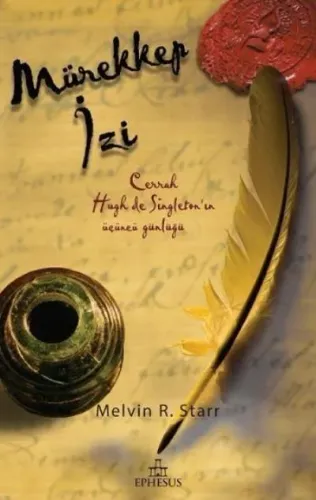 Mürekkep
İzi
Cerrah
Hugh de Singleton'ın
üçüncü günlüğü
Melvin R. Starr
EPHESUS